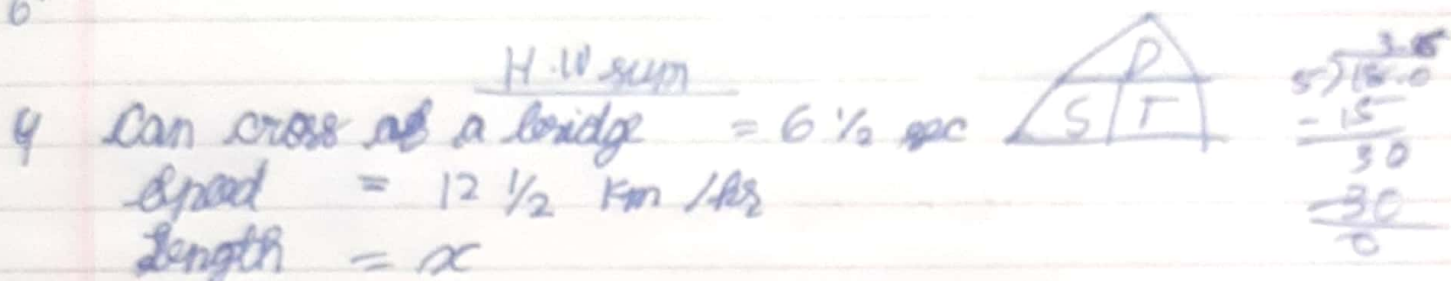 6
H.W sum
9 Can cross a bridge = 6 1/2 sec
Speed = 12 1/2 Km /hr
Length = x
D
S T
5)18.0
- 15
30
- 30
0